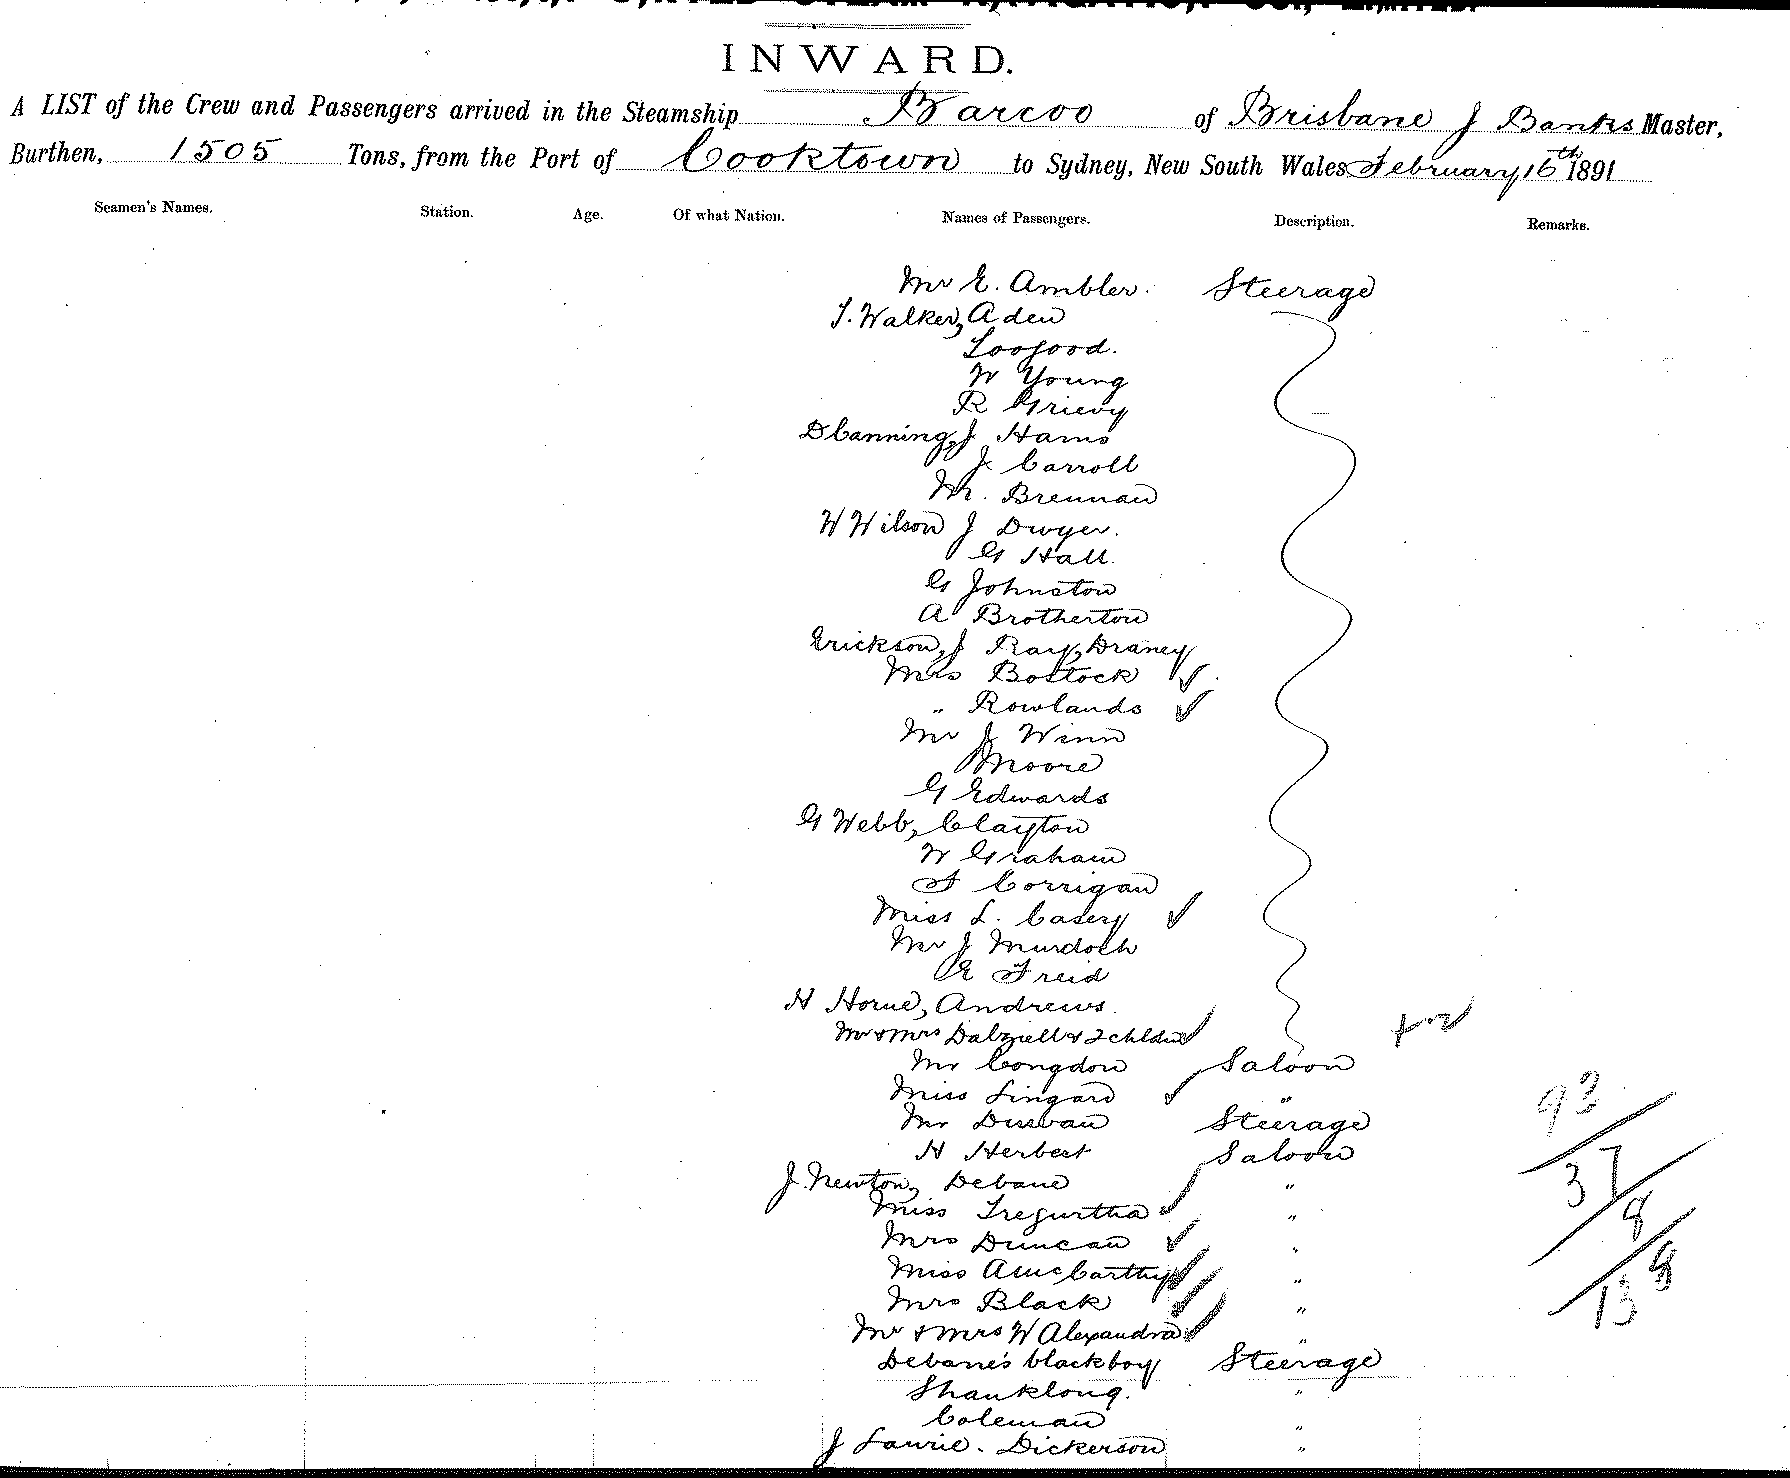 INWARD.
A LIST of the Crew and Passengers arrived in the Steamship Barcoo of Brisbane J Banks Master,
Burthen, 1505 Tons, from the Port of Cooktown to Sydney, New South Wales February 16th 1891
Seamen's Names. Station. Age. Of what Nation. Names of Passengers. Description. Remarks.
Mr E. Ambler. Steerage
T. Walker, Aden
Loogood.
W Young
R Grievy
D Canning, J Hams
J. Carroll
M. Brennan
W Wilson J Dwyer.
G Hall.
G Johnston
A Brotherton
Erickson, J Ray, Draney
Mrs Bostock
" Rowlands
Mr J Winn
Moore
G Edwards
G Webb, Clayton
W Graham
F Corrigan
Miss L. Casey
Mr J Murdoch
E Freid
H Horne, Andrews
Mr & Mrs Dalziell & 2 chldn
Mr Congdon Saloon
Miss Lingard "
Mr Durvan Steerage
H Herbert Saloon
J. Newton, Debane "
Miss Tregurtha "
Mrs Duncan "
Miss A McCarthy "
Mrs Black "
Mr & Mrs W Alexandra "
Debane's blackboy Steerage
Shanklong. "
Coleman "
J Laurie. Dickerson "
93
37
8
8
13